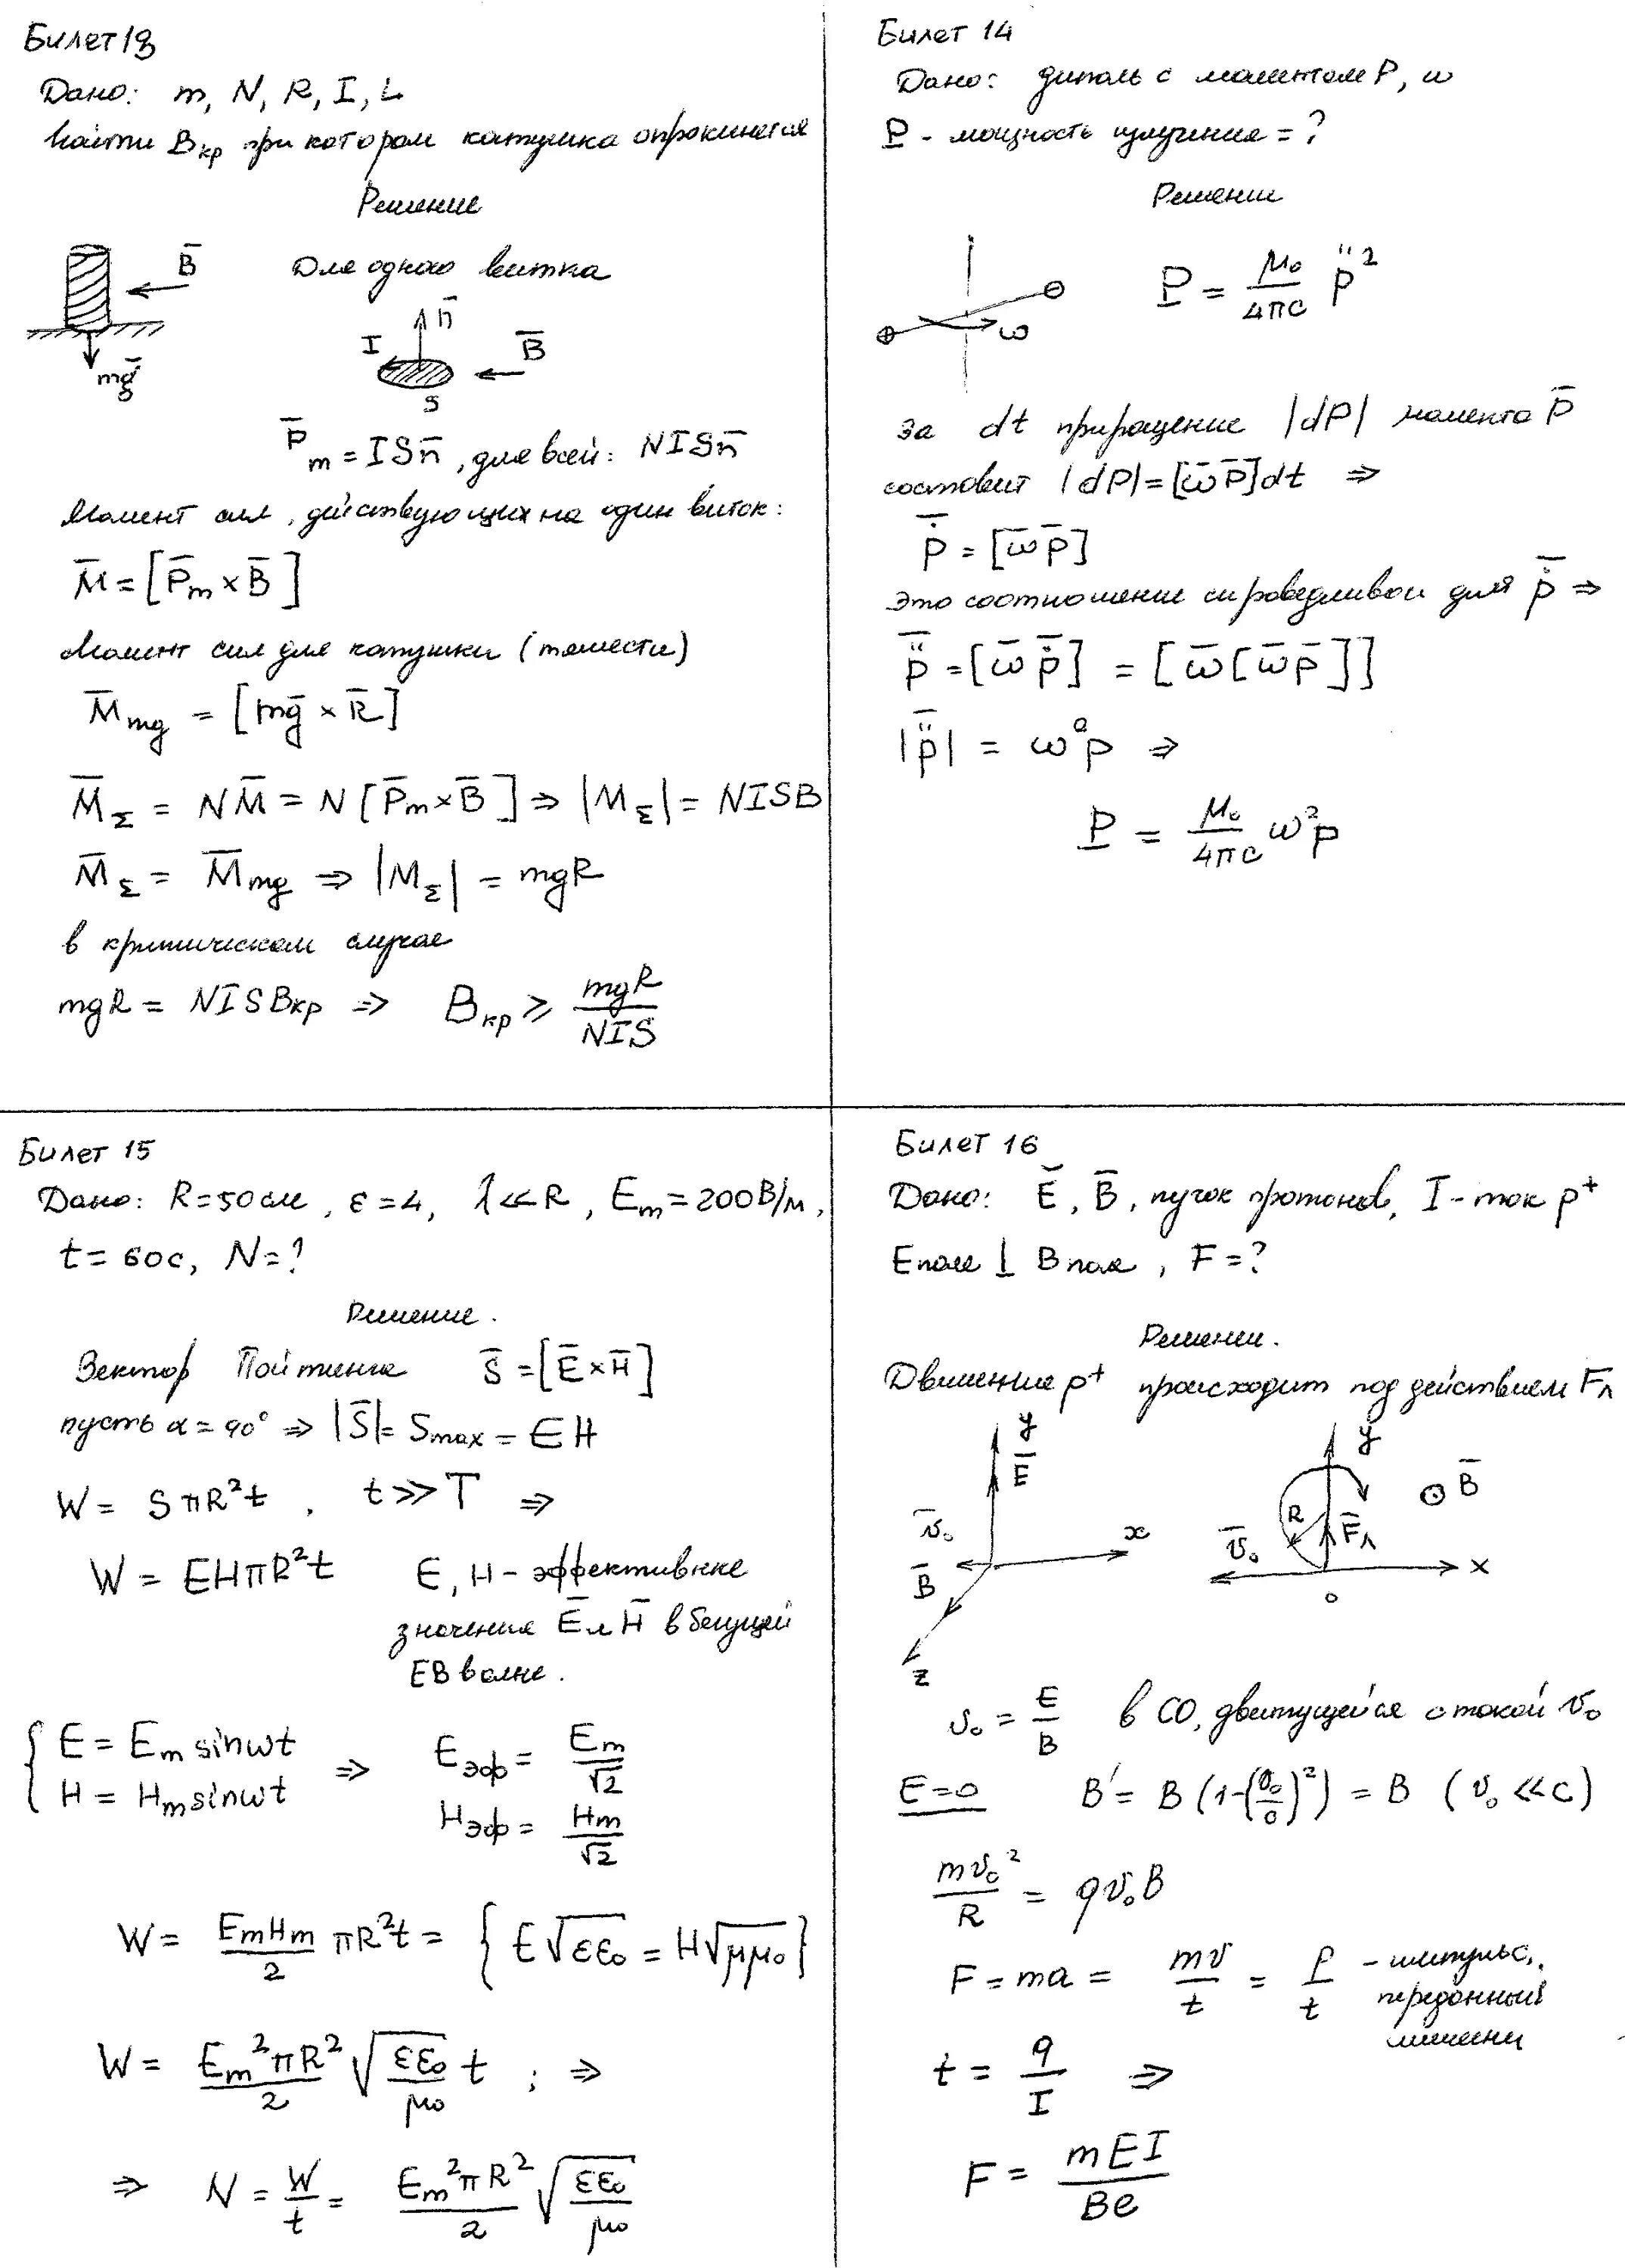 Билет 13
Дано: m, N, R, I, L
Найти Bкр при котором катушка опрокинется
Решение
B̅
mg̅
Для одного витка
n̅
I
B̅
S
P̅m = ISn̅, для всей: NISn̅
Момент сил, действующих на один виток:
M̅ = [P̅m × B̅]
Момент сил для катушки (тяжести)
M̅mg = [mg̅ × R̅]
M̅Σ = NM̅ = N[P̅m × B̅] ⇒ |MΣ| = NISB
M̅Σ = M̅mg ⇒ |MΣ| = mgR
в критическом случае
mgR = NISBкр ⇒ Bкр ≥ mgR/NIS
Билет 14
Дано: диполь с моментом P, ω
P - мощность излучения = ?
Решение
ω
P = μ₀/4πc p̈²
За dt приращение |dP| момента P̅
составит |dP| = [ω̅P̅]dt ⇒
ṗ̅ = [ω̅p̅]
Это соотношение справедливо и для ṗ̅ ⇒
p̈̅ = [ω̅ṗ̅] = [ω̅[ω̅p̅]]
|p̈̅| = ω²p ⇒
P = μ₀/4πc ω²p
Билет 15
Дано: R=50см, ε=4, λ≪R, Em=200В/м,
t=60с, N=?
Решение.
Вектор Пойтинга S̅=[E̅×H̅]
пусть α=90° ⇒ |S̅|=Smax=EH
W = SπR²t, t≫T ⇒
W = EHπR²t E, H - эффективные
значения E̅ и H̅ в бегущей
ЕВ волне.
E = Em sinωt ⇒ Eэф = Em/√2
H = Hm sinωt Hэф = Hm/√2
W = EmHm/2 πR²t = {E√εε₀ = H√μμ₀}
W = Em²πR²/2 √εε₀/μ₀ t ; ⇒
⇒ N = W/t = Em²πR²/2 √εε₀/μ₀
Билет 16
Дано: E̅, B̅, пучок протонов, I - ток p⁺
E поле ⊥ B поля, F=?
Решение.
Движение p⁺ происходит под действием Fл
y
E̅
v̅₀
x
B̅
z
y
B̅
R
F̅л
v̅₀
x
0
v₀ = E/B в СО, движущейся с такой v₀
E=0 B' = B(1-(v₀/c)²) = B (v₀≪c)
mv₀²/R = qv₀B
F = ma = mv/t = P/t - импульс,
переданный
мишени
t = q/I ⇒
F = mEI/Be